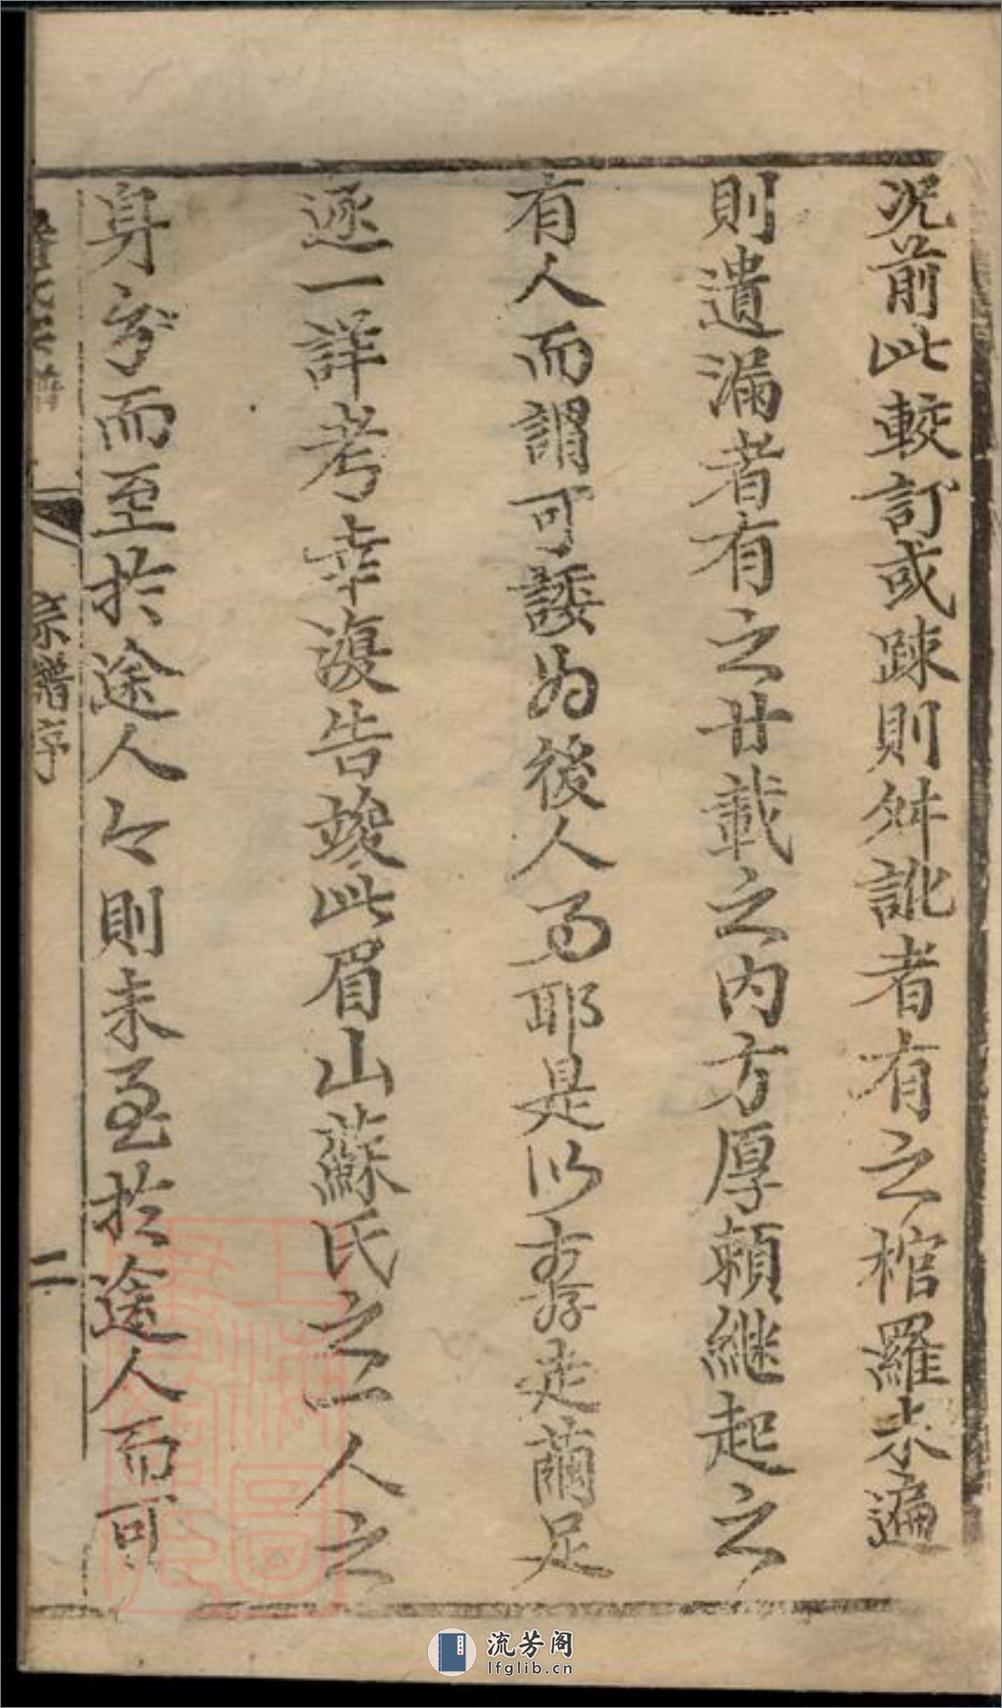 况前此較訂或踈則舛訛者有之棺羅未遍
則遺漏者有之廿載之内方厚賴継起之
有人而謂可諉為後人事耶是以奔走繭足
逐一詳考幸復告竣此眉山蘇氏之一人之
身分而至於途人々則未至於途人而可
宗譜序
二
上海圖書館藏
流芳阁
lfglib.cn